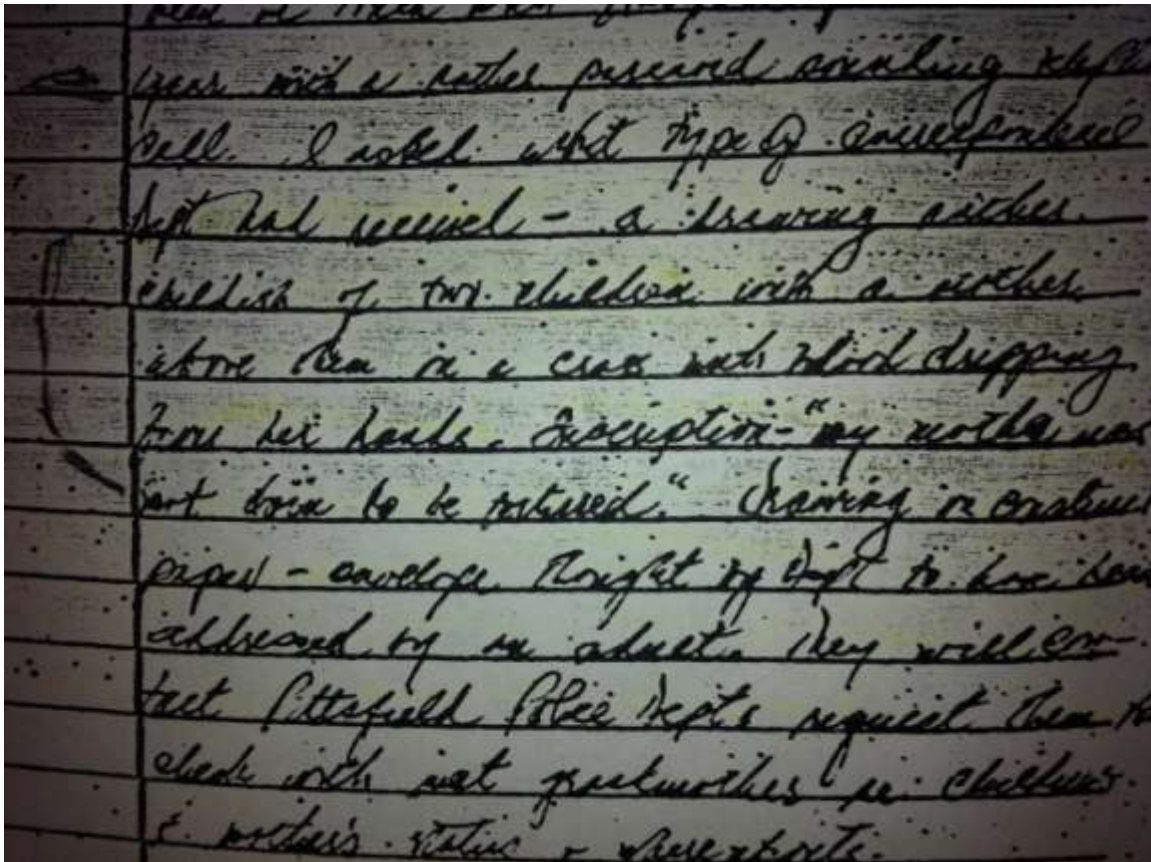 year with a rather paranoid sounding
call. I asked what type of correspondence
Dept had received - a drawing rather
childish of two children with a mother
above them on a cross with blood dripping
from her hands. Inscription - "my mother was
not born to be misused." Drawing on construc
paper - envelope thought by Dept to have been
addressed by an adult. They will con-
tact Pittsfield Police Dept & request them to
check with mat grandmother re: childrens
& mother's status & whereabouts.